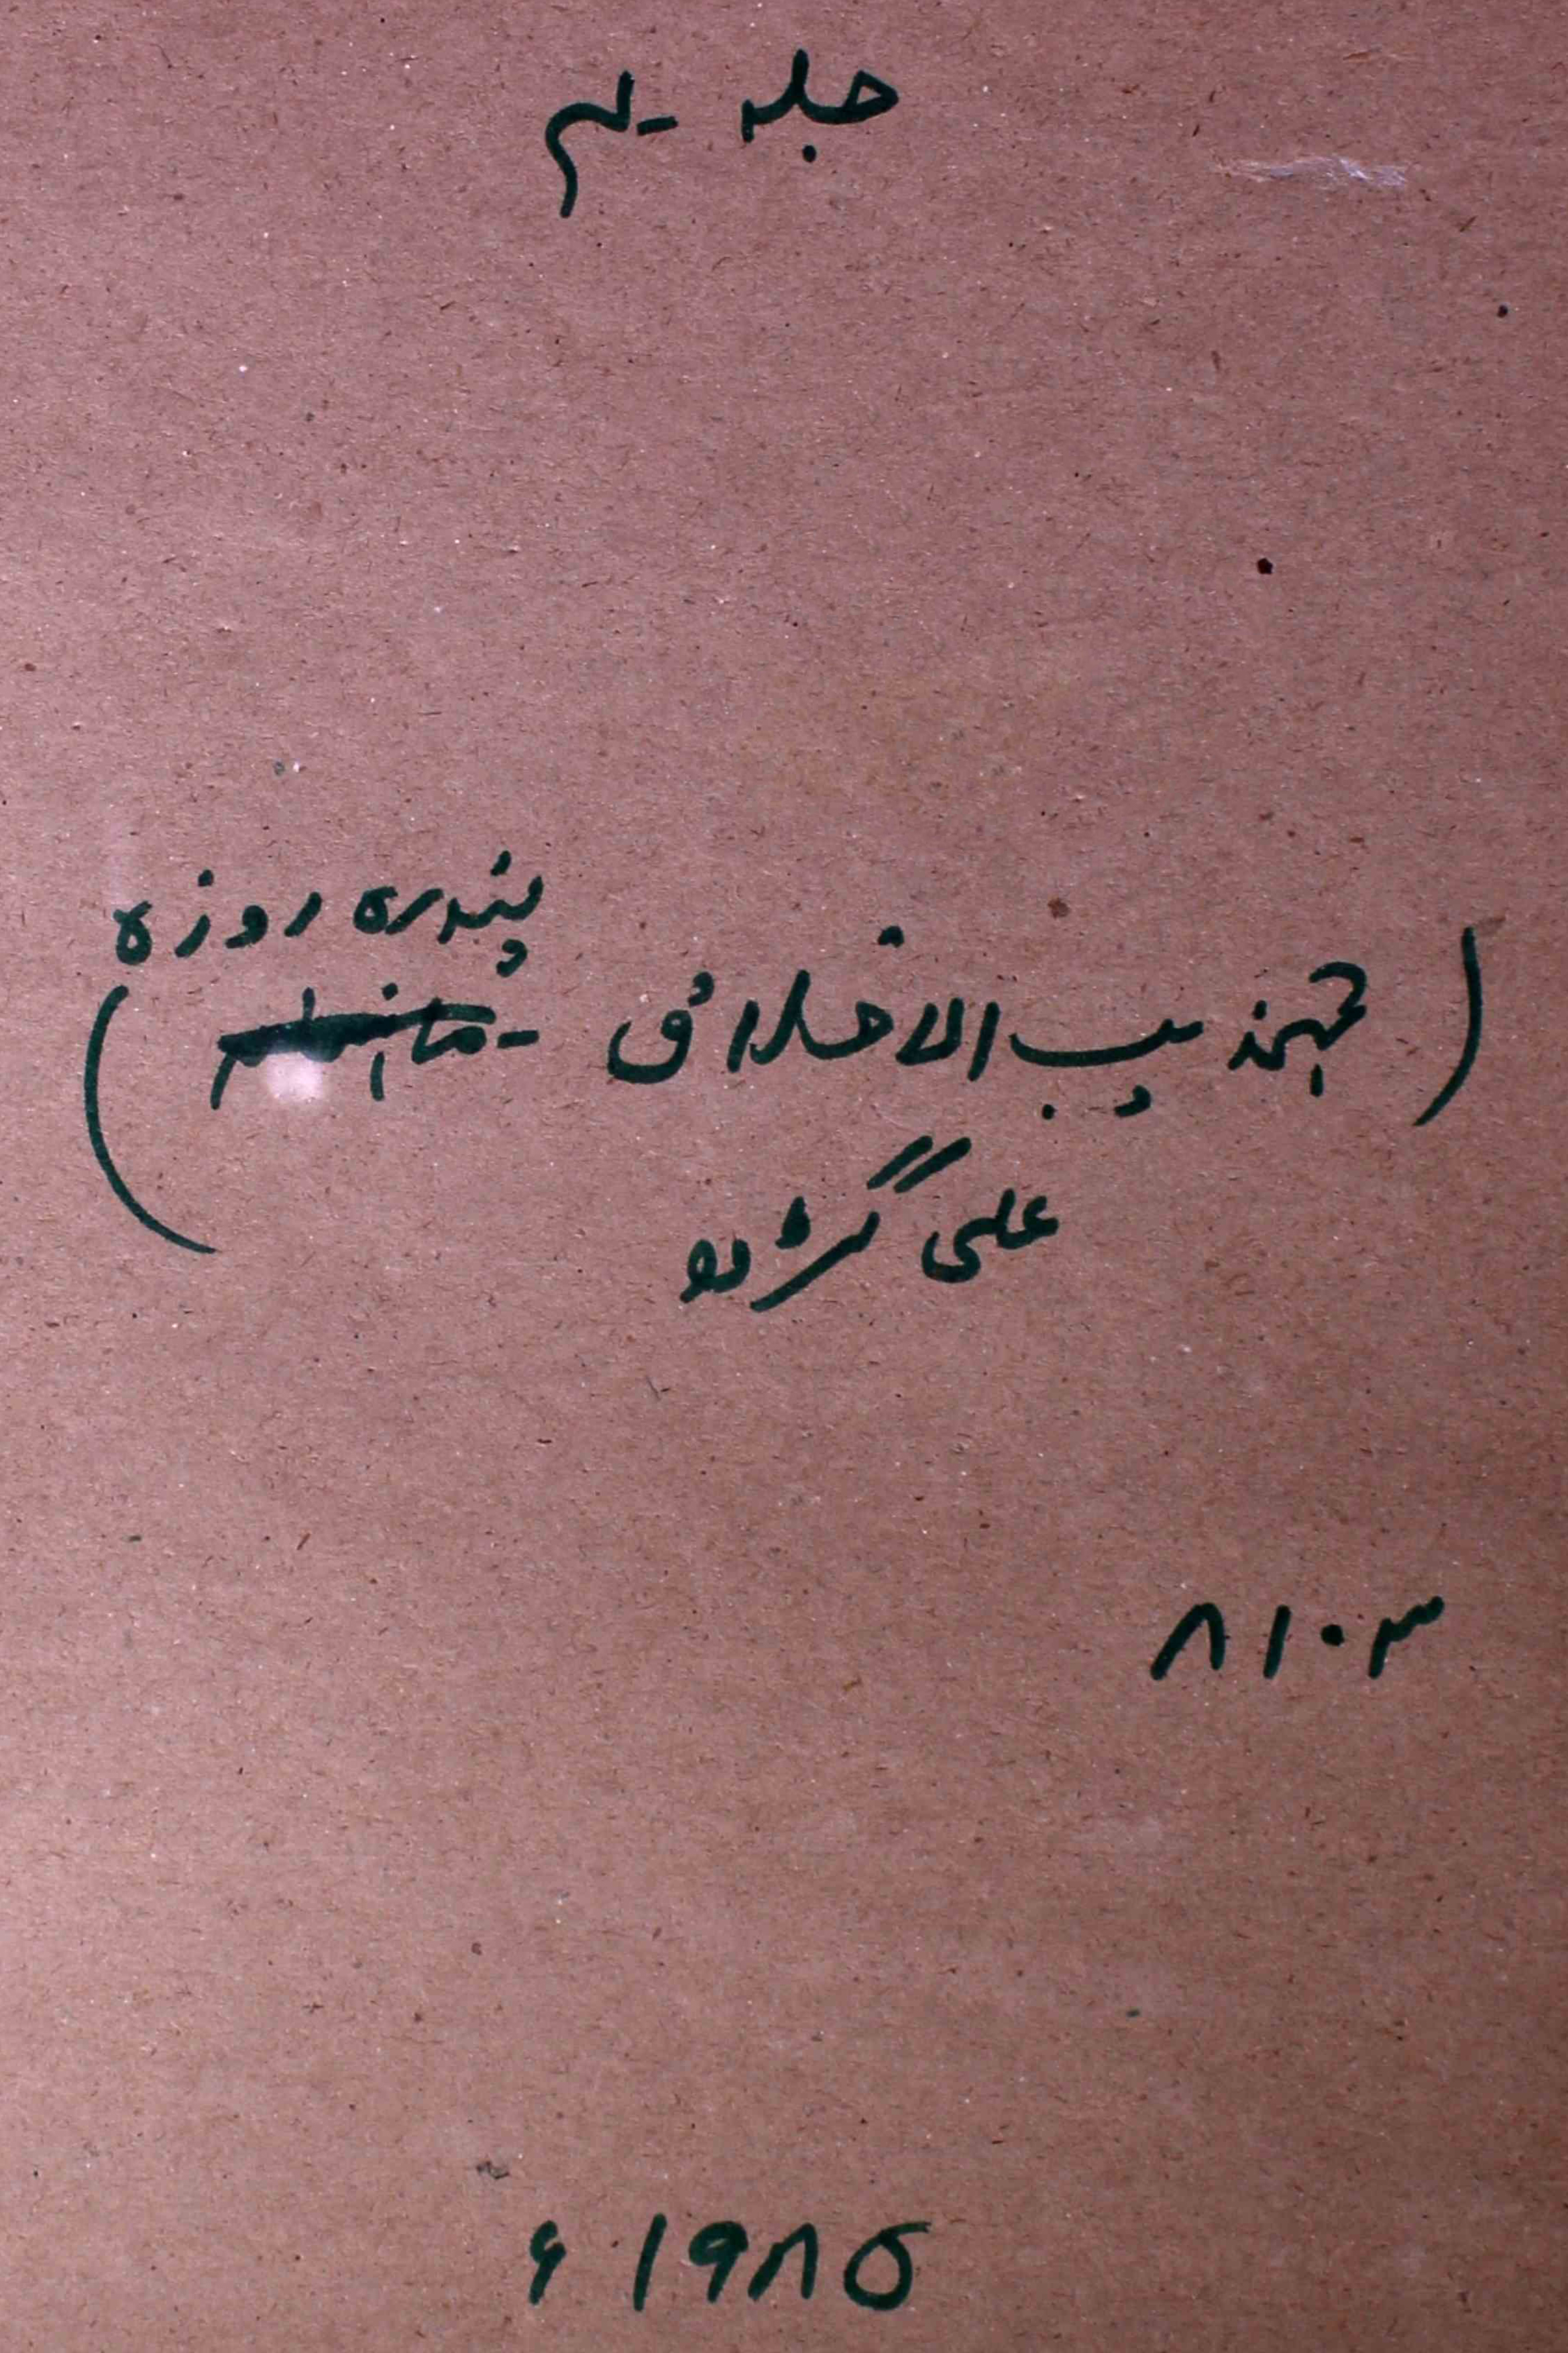 جلد - ۴
پندرہ روزہ
(تہذیب الاخلاق -)
علی گڑھ
۸۱۰۳
۱۹۸۵ء